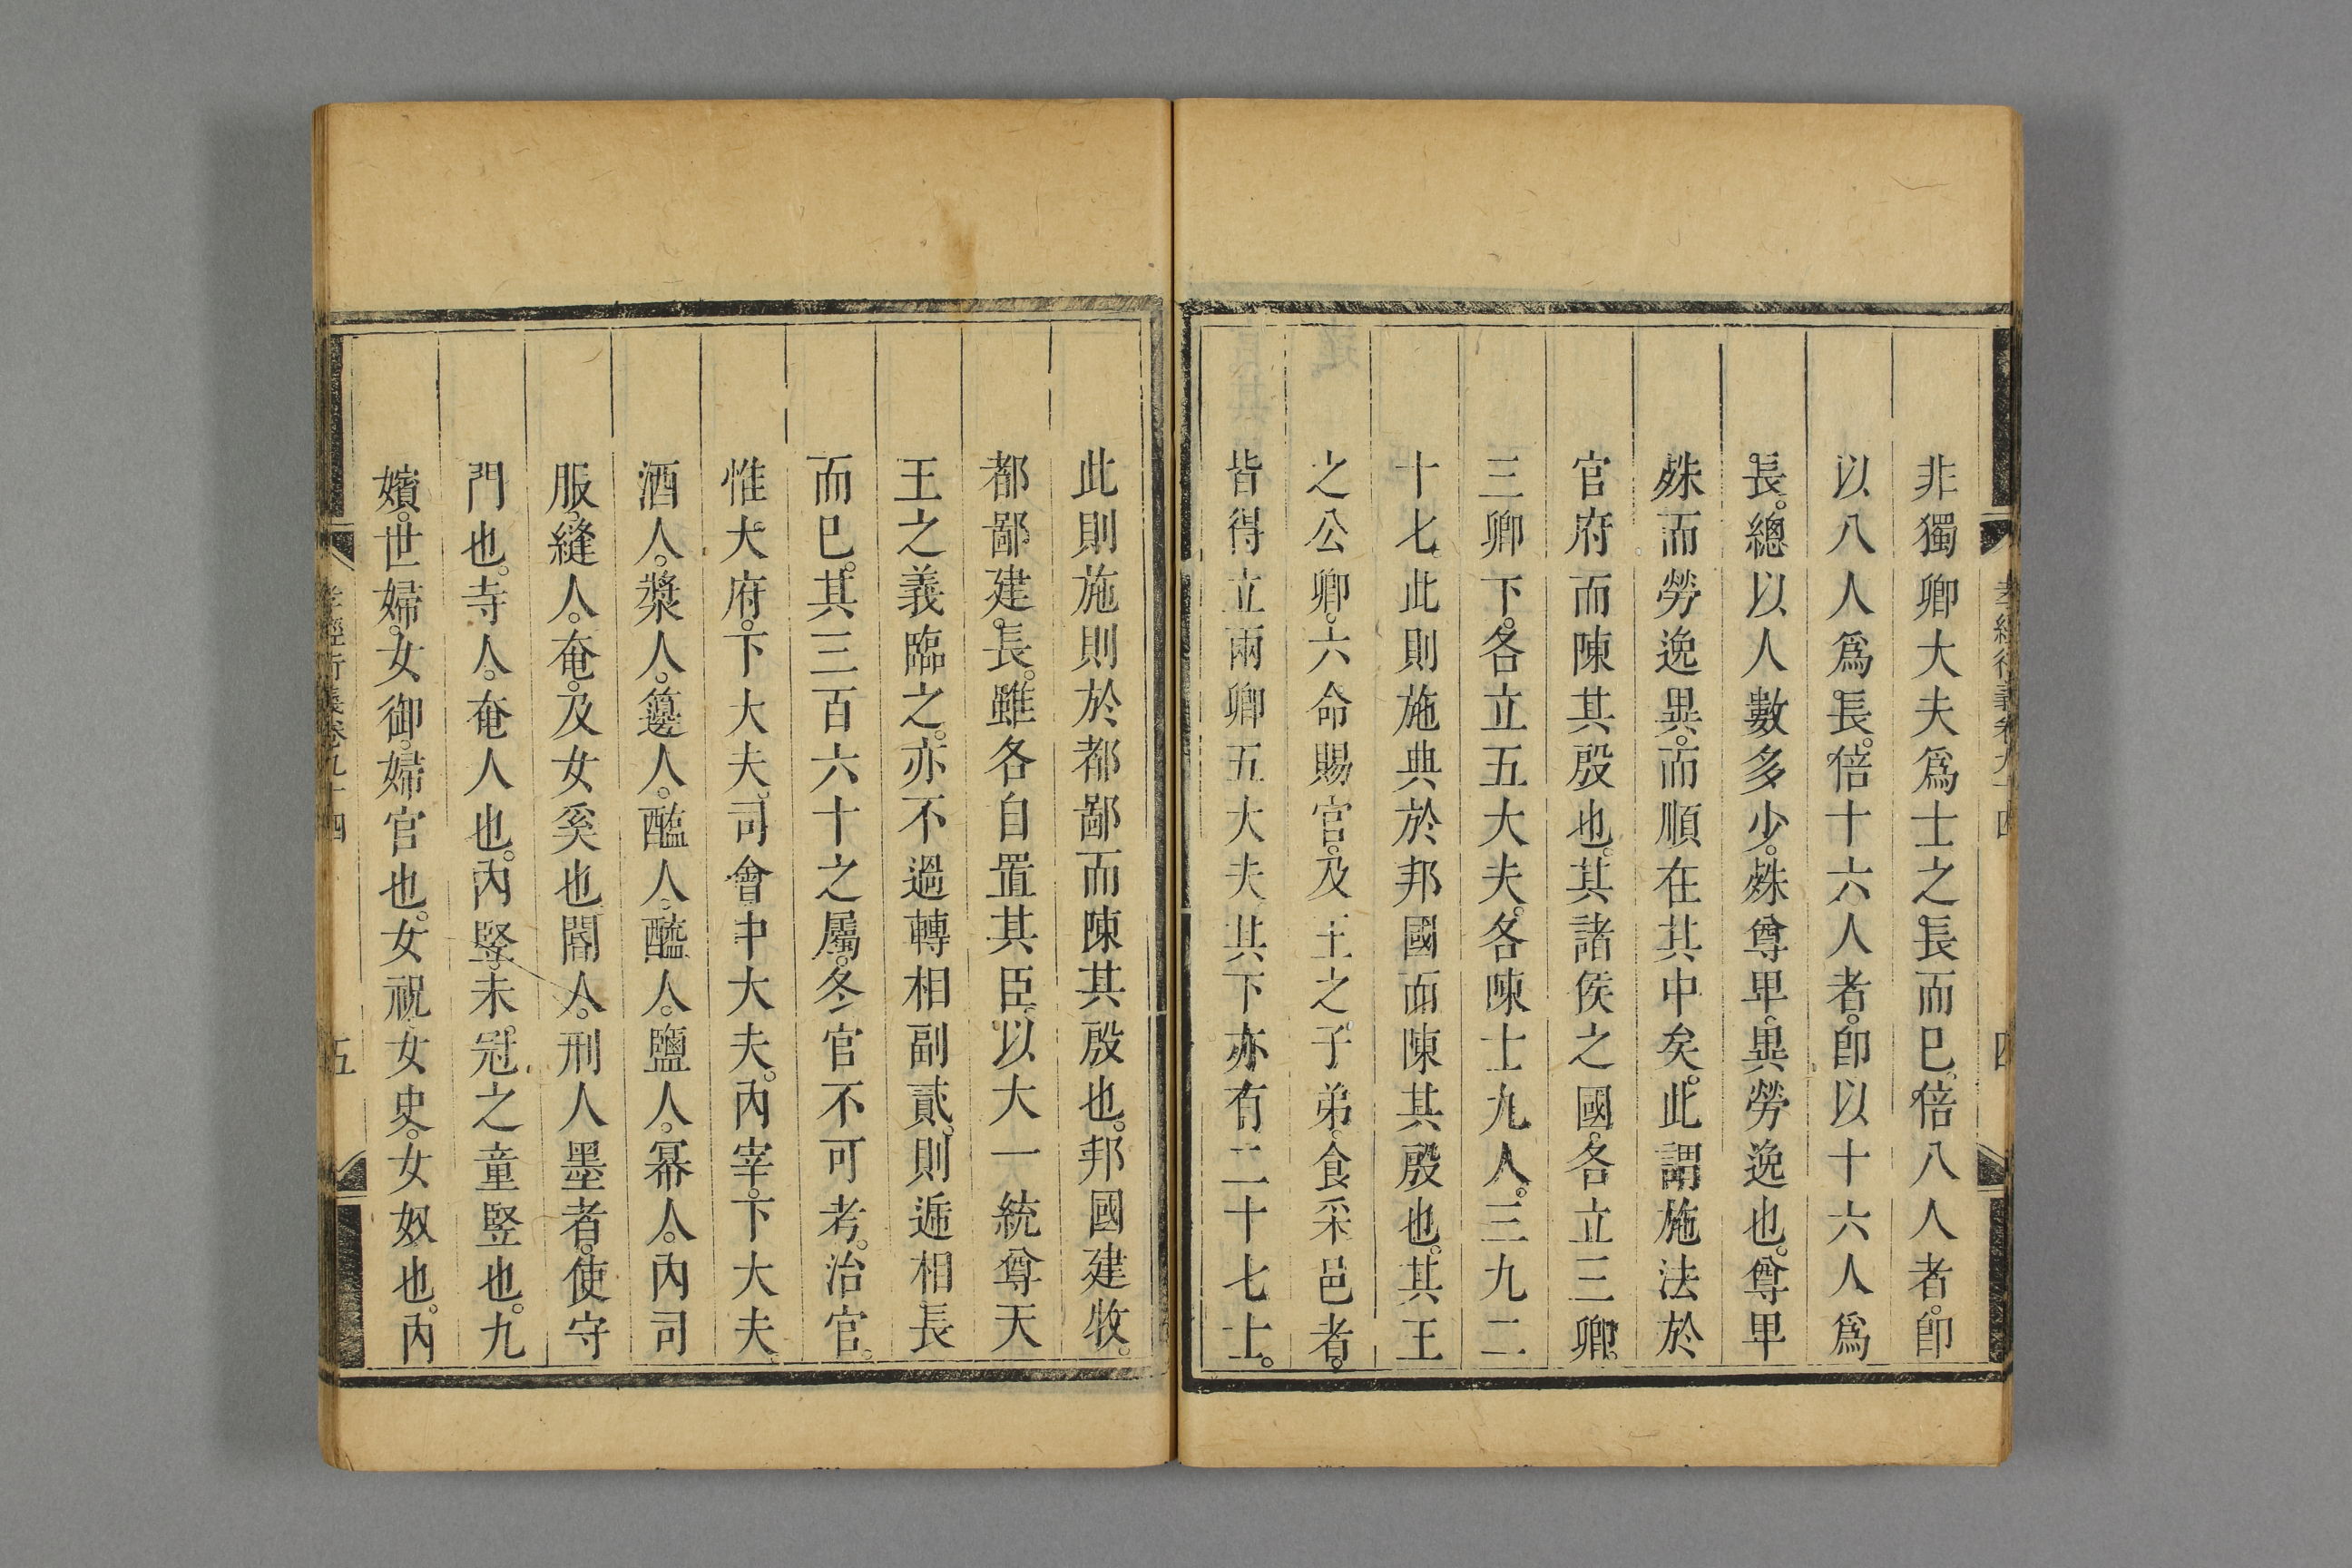 孝經衍義卷九十四
四
非獨卿大夫爲士之長而巳倍八人者。卽
以八人爲長。倍十六人者。卽以十六人爲
長。總以人數多少。殊尊卑。異勞逸也。尊卑
殊而勞逸異。而順在其中矣。此謂施法於
官府而陳其殷也。其諸侯之國。各立三卿。
三卿下。各立五大夫。各陳士九人。三九二
十七。此則施典於邦國而陳其殷也。其王
之公卿。六命賜官。及王之子弟。食采邑者。
皆得立兩卿五大夫其下亦有二十七士。
此則施則於都鄙而陳其殷也。邦國建牧。
都鄙建。長。雖各自置其臣。以大一統尊天
王之義臨之。亦不過轉相副貳。則遞相長
而巳。其三百六十之屬。冬官不可考。治官。
惟大府。下大夫。司會中大夫。內宰。下大夫。
酒人。漿人。籩人。醢人。醯人。鹽人。冪人。內司
服。縫人。奄。及女奚也。閽人。刑人墨者。使守
門也。寺人。奄人也。內豎。未冠之童豎也。九
嬪。世婦。女御。婦官也。女祝女史。女奴也。內
孝經衍義卷九十四
五